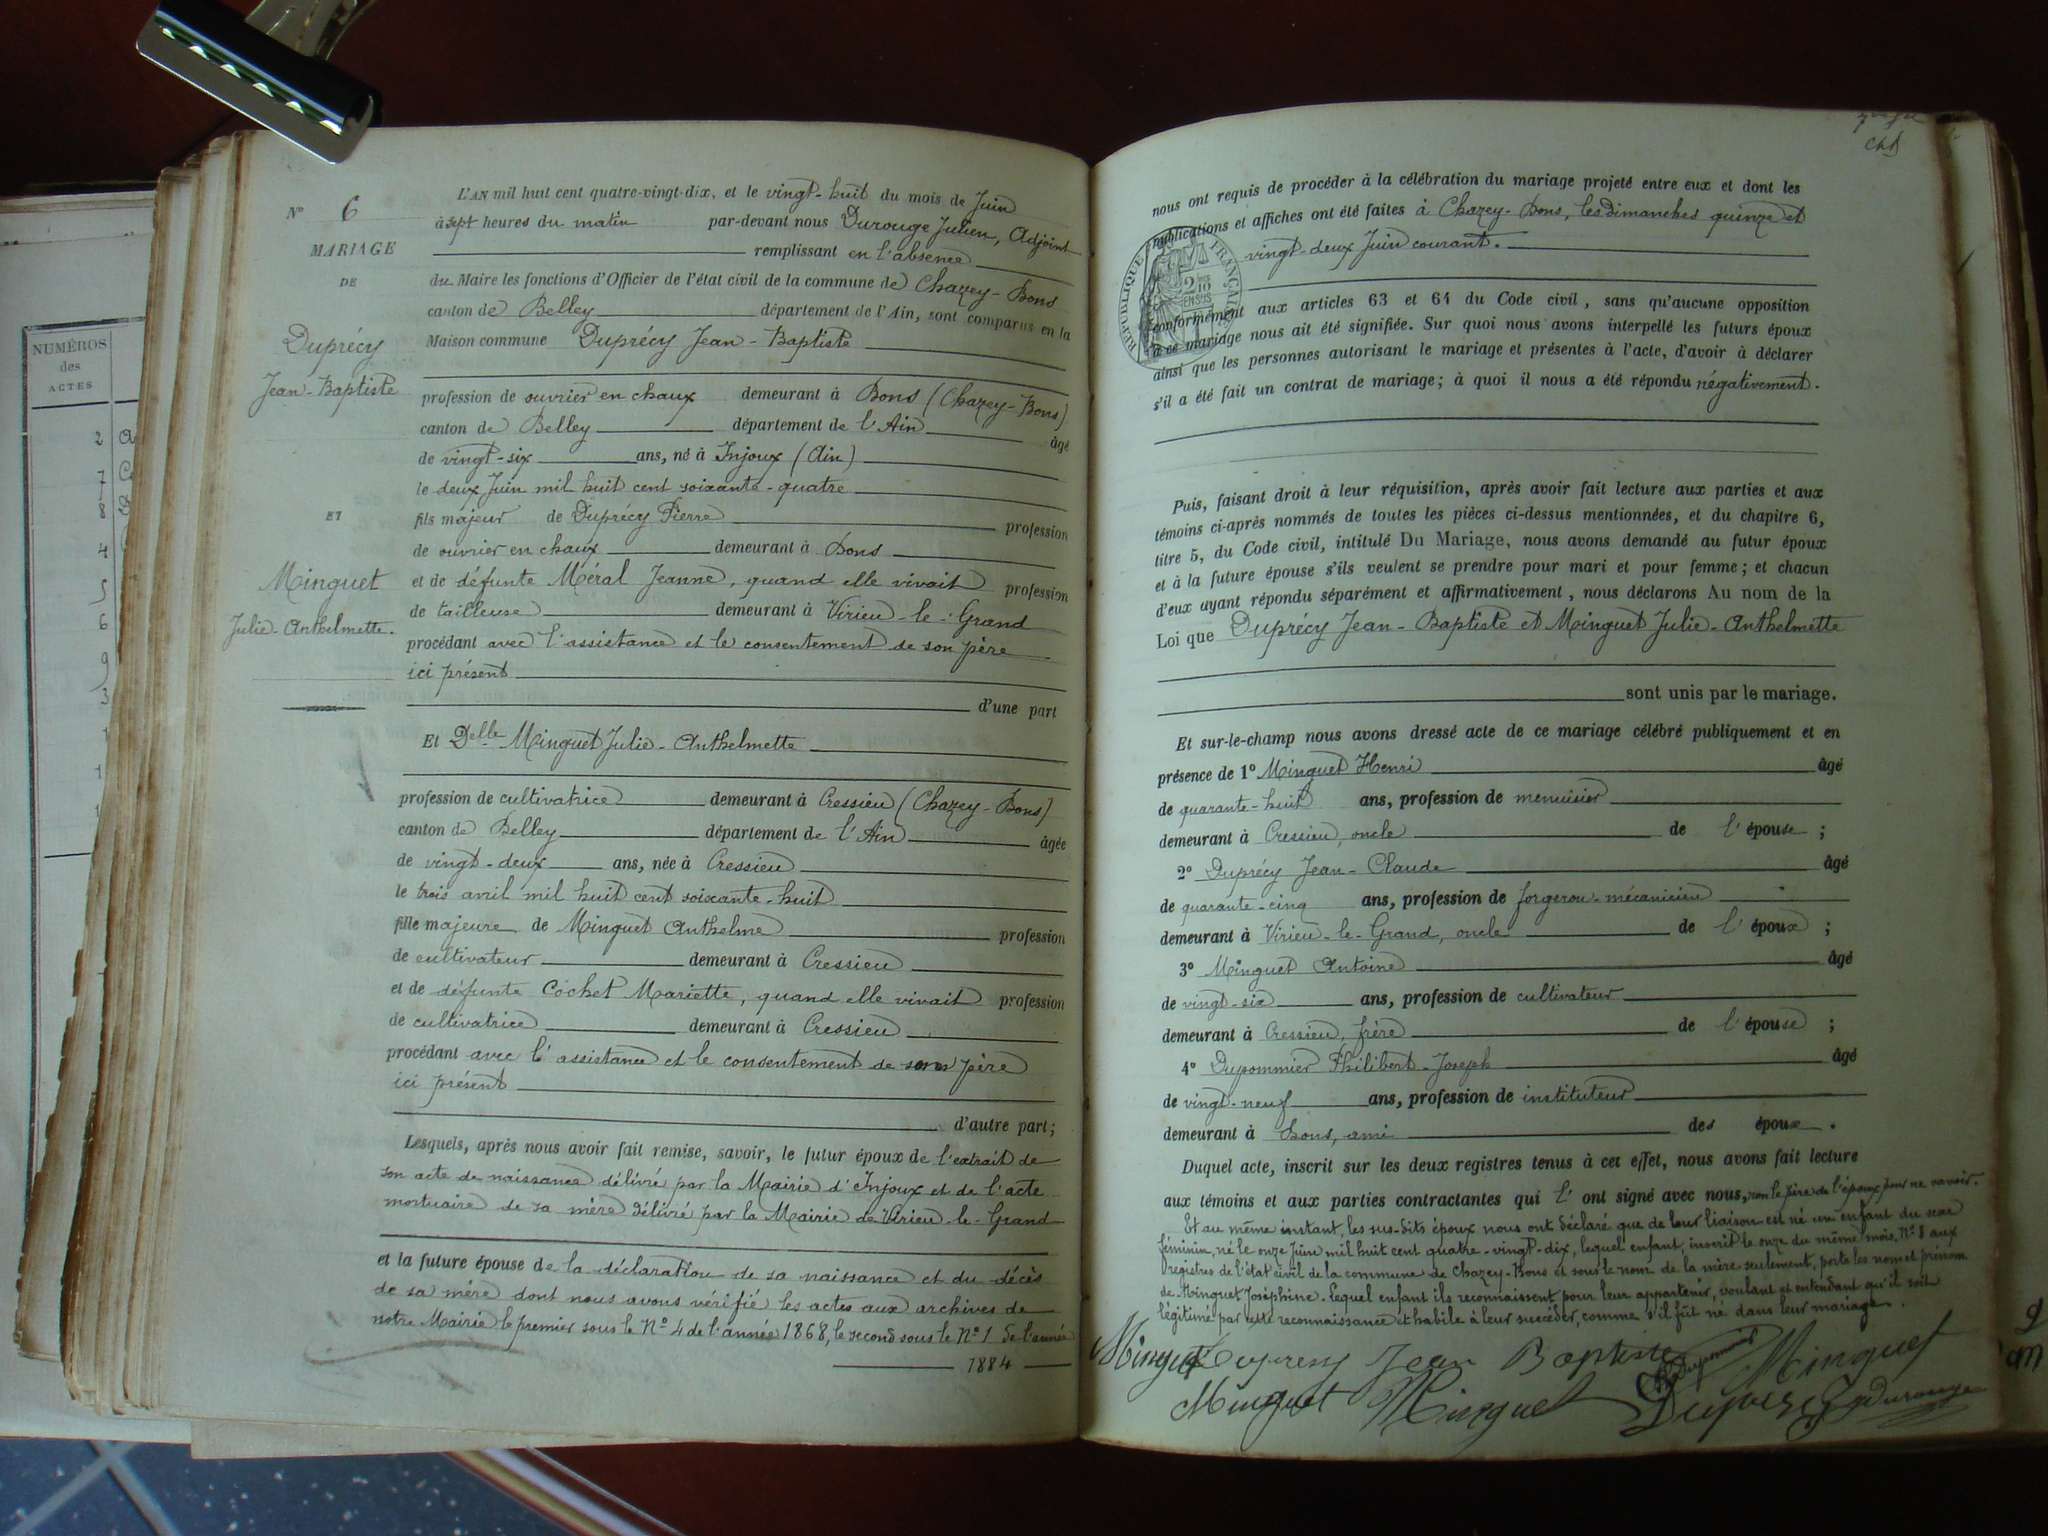 NUMÉROS
des
ACTES
2
7
8
4
5
6
9
3
N° 6
MARIAGE
DE
Duprécy
Jean-Baptiste
ET
Minguet
Julie-Anthelmette.
L'AN mil huit cent quatre-vingt-dix, et le vingt-huit du mois de Juin
à sept heures du matin par-devant nous Durouge Julien, Adjoint
remplissant en l'absence
du Maire les fonctions d'Officier de l'état civil de la commune de Chazey-Bons
canton de Belley département de l'Ain, sont comparus en la
Maison commune Duprécy Jean-Baptiste
profession de ouvrier en chaux demeurant à Bons (Chazey-Bons)
canton de Belley département de l'Ain âgé
de vingt-six ans, né à Injoux (Ain)
le deux Juin mil huit cent soixante-quatre
fils majeur de Duprécy Pierre profession
de ouvrier en chaux demeurant à Bons
et de défunte Méral Jeanne, quand elle vivait profession
de tailleuse demeurant à Virieu-le-Grand
procédant avec l'assistance et le consentement de son père
ici présent
d'une part
Et Delle Minguet Julie-Anthelmette
profession de cultivatrice demeurant à Cressieu (Chazey-Bons)
canton de Belley département de l'Ain âgée
de vingt-deux ans, née à Cressieu
le trois avril mil huit cent soixante-huit
fille majeure de Minguet Anthelme profession
de cultivateur demeurant à Cressieu
et de défunte Cochet Mariette, quand elle vivait profession
de cultivatrice demeurant à Cressieu
procédant avec l'assistance et le consentement de son père
ici présent
d'autre part;
Lesquels, après nous avoir fait remise, savoir, le futur époux de l'extrait de
son acte de naissance délivré par la Mairie d'Injoux et de l'acte
mortuaire de sa mère délivré par la Mairie de Virieu-le-Grand
et la future épouse de la déclaration de sa naissance et du décès
de sa mère dont nous avons vérifié les actes aux archives de
notre Mairie le premier sous le N° 4 de l'année 1868, le second sous le N° 1 de l'année
1884
nous ont requis de procéder à la célébration du mariage projeté entre eux et dont les
publications et affiches ont été faites à Chazey-Bons, les dimanches quinze et
vingt-deux Juin courant.
RÉPUBLIQUE FRANÇAISE
conformément aux articles 63 et 64 du Code civil, sans qu'aucune opposition
à ce mariage nous ait été signifiée. Sur quoi nous avons interpellé les futurs époux
ainsi que les personnes autorisant le mariage et présentes à l'acte, d'avoir à déclarer
s'il a été fait un contrat de mariage; à quoi il nous a été répondu négativement.
Puis, faisant droit à leur réquisition, après avoir fait lecture aux parties et aux
témoins ci-après nommés de toutes les pièces ci-dessus mentionnées, et du chapitre 6,
titre 5, du Code civil, intitulé Du Mariage, nous avons demandé au futur époux
et à la future épouse s'ils veulent se prendre pour mari et pour femme; et chacun
d'eux ayant répondu séparément et affirmativement, nous déclarons Au nom de la
Loi que Duprécy Jean-Baptiste et Minguet Julie-Anthelmette
sont unis par le mariage.
Et sur-le-champ nous avons dressé acte de ce mariage célébré publiquement et en
présence de 1° Minguet Henri âgé
de quarante-huit ans, profession de menuisier
demeurant à Cressieu, oncle de l'épouse;
2° Duprécy Jean-Claude âgé
de quarante-cinq ans, profession de forgeron-mécanicien
demeurant à Virieu-le-Grand, oncle de l'époux;
3° Minguet Antoine âgé
de vingt-six ans, profession de cultivateur
demeurant à Cressieu, frère de l'épouse;
4° Dupommier Philibert-Joseph âgé
de vingt-neuf ans, profession de instituteur
demeurant à Bons, ami des époux.
Duquel acte, inscrit sur les deux registres tenus à cet effet, nous avons fait lecture
aux témoins et aux parties contractantes qui l'ont signé avec nous, non le père de l'époux pour ne savoir.
Et au même instant, les sus-dits époux nous ont déclaré que de leur liaison est né un enfant du sexe
féminin, né le onze Juin mil huit cent quatre-vingt-dix, lequel enfant, inscrit le onze du même mois, N° 8 aux
registres de l'état civil de la commune de Chazey-Bons et sous le nom de la mère seulement, porte les nom et prénom
de Minguet Joséphine. Lequel enfant ils reconnaissent pour leur appartenir, voulant et entendant qu'il soit
légitimé par cette reconnaissance et habile à leur succéder, comme s'il fût né dans leur mariage.
Minguet Dupressy Jean Baptiste Dupommier Minguet
Minguet Minguet Duprécy Jn Durouge